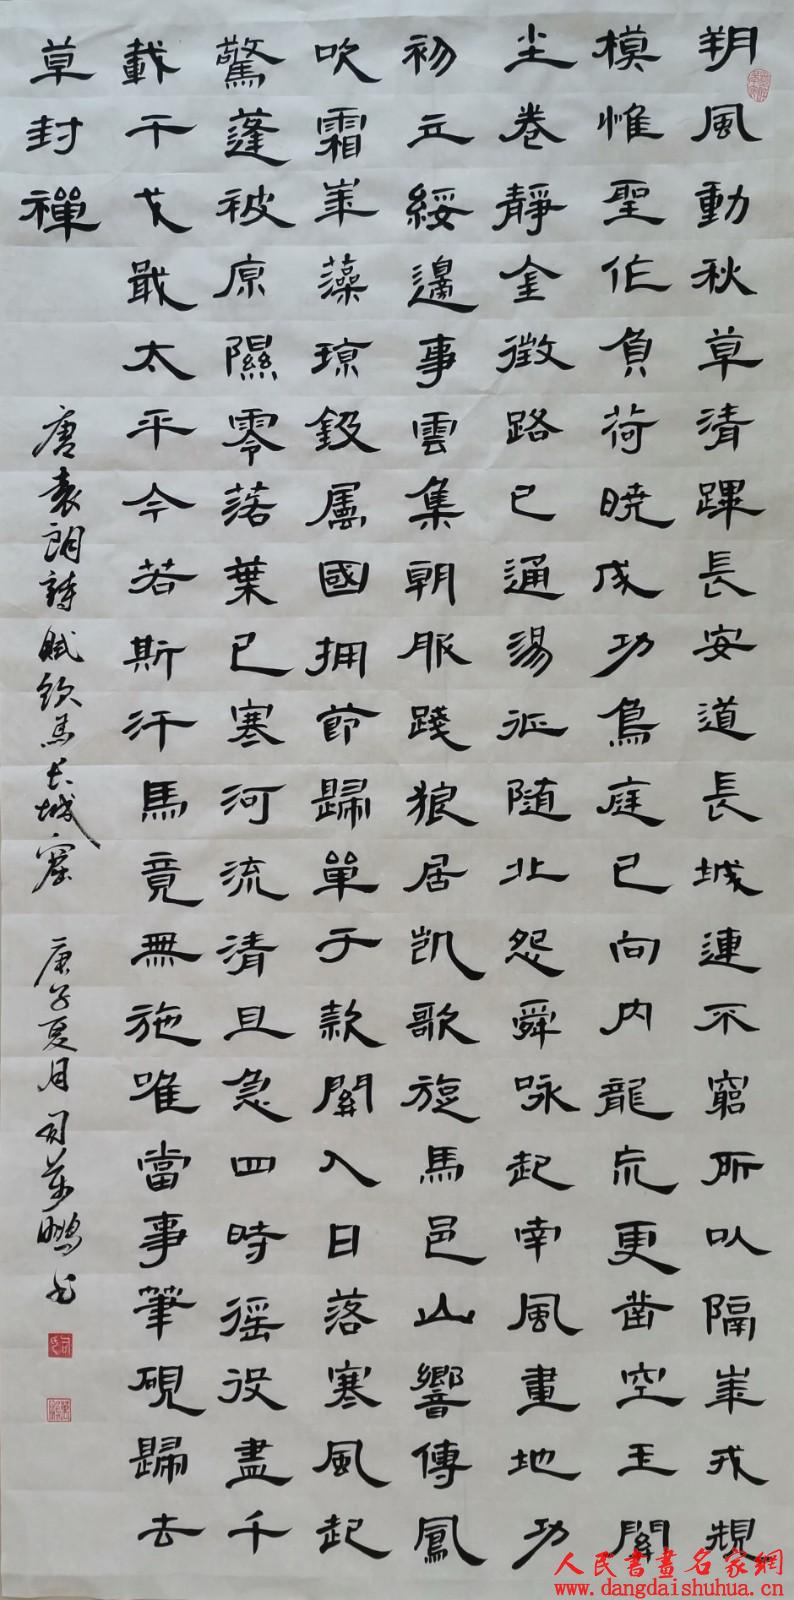 朔風動秋草清蹕長安道長城連不窮所以隔崋戎規
模惟聖作負荷暁成功鳥庭已向内龍荒更凿空玉關
尘卷靜金徴路已通湯征随北怨舜咏起南風畫地功
初立綏邊事雲集朝服踐狼居凱歌旋馬邑山響傳鳳
吹霜崋藻琼鈒属國拥節歸單于款關入日落寒風起
驚蓬被原隰零落葉已寒河流清且急四時徭役盡千
載干戈戢太平今若斯汗馬竟無施唯當事筆硯歸去
草封禪
唐袁朗詩賦飲馬長城窟 庚子夏月司萬鵬书
人民書畫名家網
www.dangdaishuhua.cn